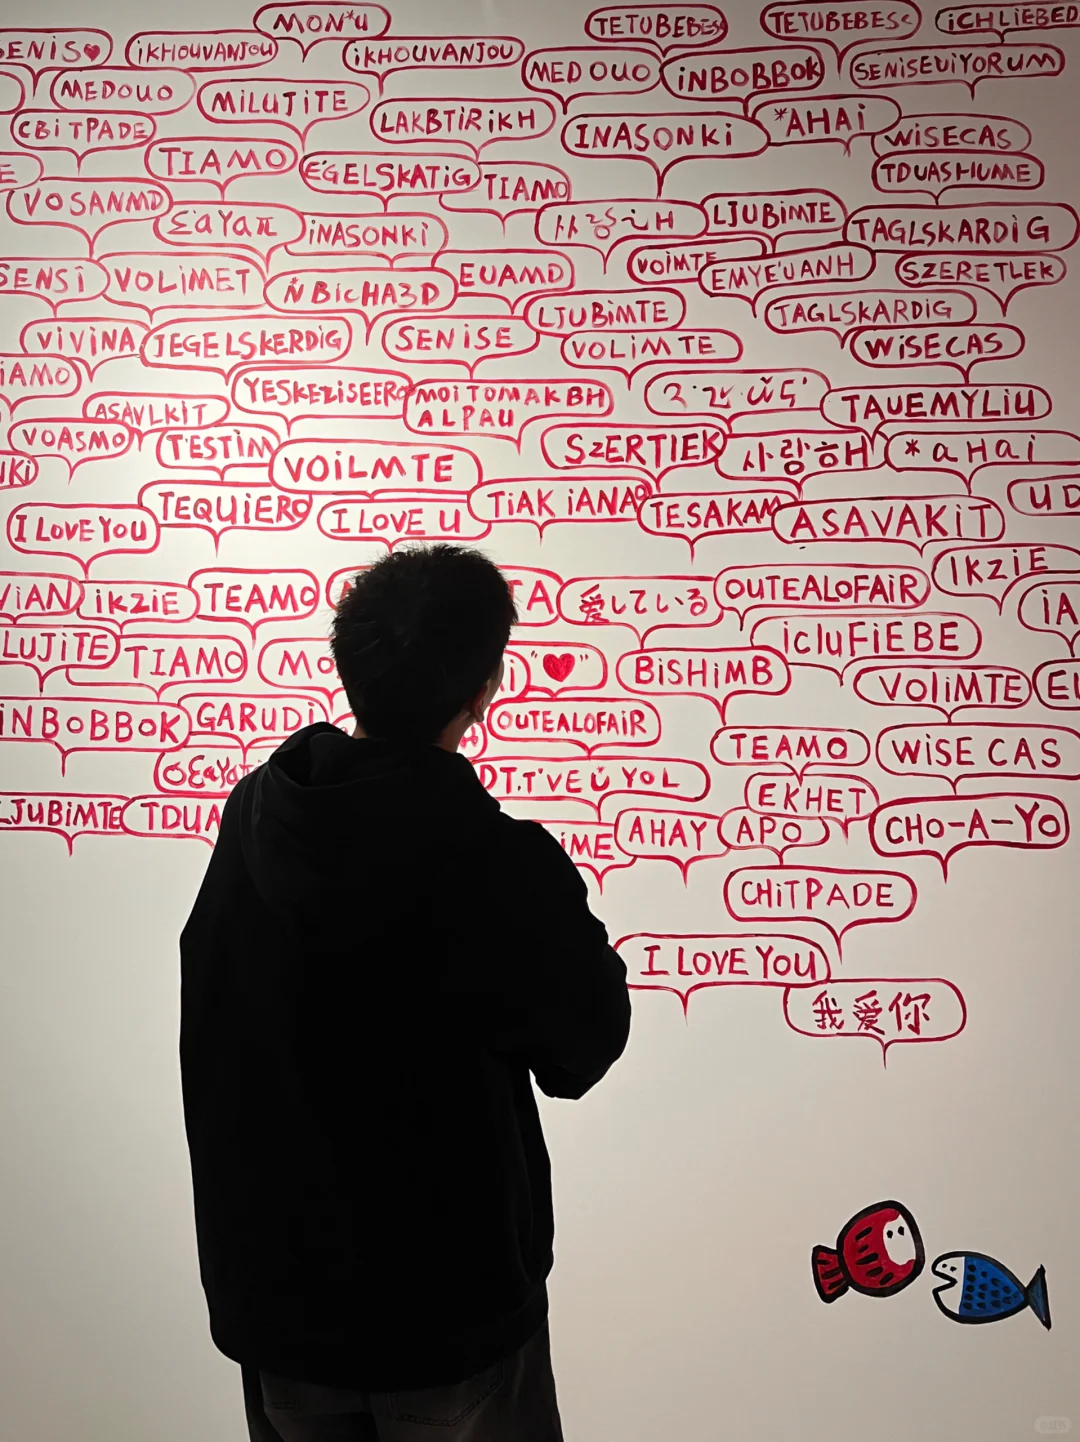 MON*U
TETUBEBESC
TETUBEBESC
iCHLiEBED
ENiS♥
iKHOUVANJOU
iKHOUVANJOU
MEDOUO
iNBOBBOK
SENiSEUiYORUM
MEDOUO
MiLUJiTE
LAKBTiRiKH
INASONKi
*AHAi
WiSECAS
CBiTPADE
TIAMO
EGELSKATiG
TIAMO
TDUASHUME
VOSANMD
ΣaYaπ
iNASONKi
LJUBiMTE
TAGLSKARDiG
SENSi
VOLiMET
ÑBicHA3D
EUAMD
VOiMTE
EMYE'UANH
SZERETLEK
LJUBiMTE
TAGLSKARDiG
ViViNA
JEGELSKERDiG
SENiSE
VOLiMTE
WiSECAS
iAMO
YESKEZiSEERO
MOiTOMAKBH
ALPAU
TAUEMYLiU
ASAVLKiT
VOASMO
TESTiM
VOiLMTE
SZERTIEK
사랑해
*aHai
UKi
TEQUiERO
TiAKiANA
TESAKAM
ASAVAKiT
UD
I LOVE YOU
I LOVE U
IKZiE
ViAN
iKZiE
TEAMO
TA
愛している
OUTEALOFAiR
iA
LUJiTE
TIAMO
MO
"♥"
BiSHiMB
icluFiEBE
VOliMTE
EI
iNBOBBOK
GARUDi
OUTEALOFAiR
TEAMO
WiSE CAS
DT.T'VEŬ YOL
EKHET
LJUBiMTE
TDUA
iME
AHAY
APO
CHO-A-YO
CHiTPADE
I LOVE YOU
我爱你